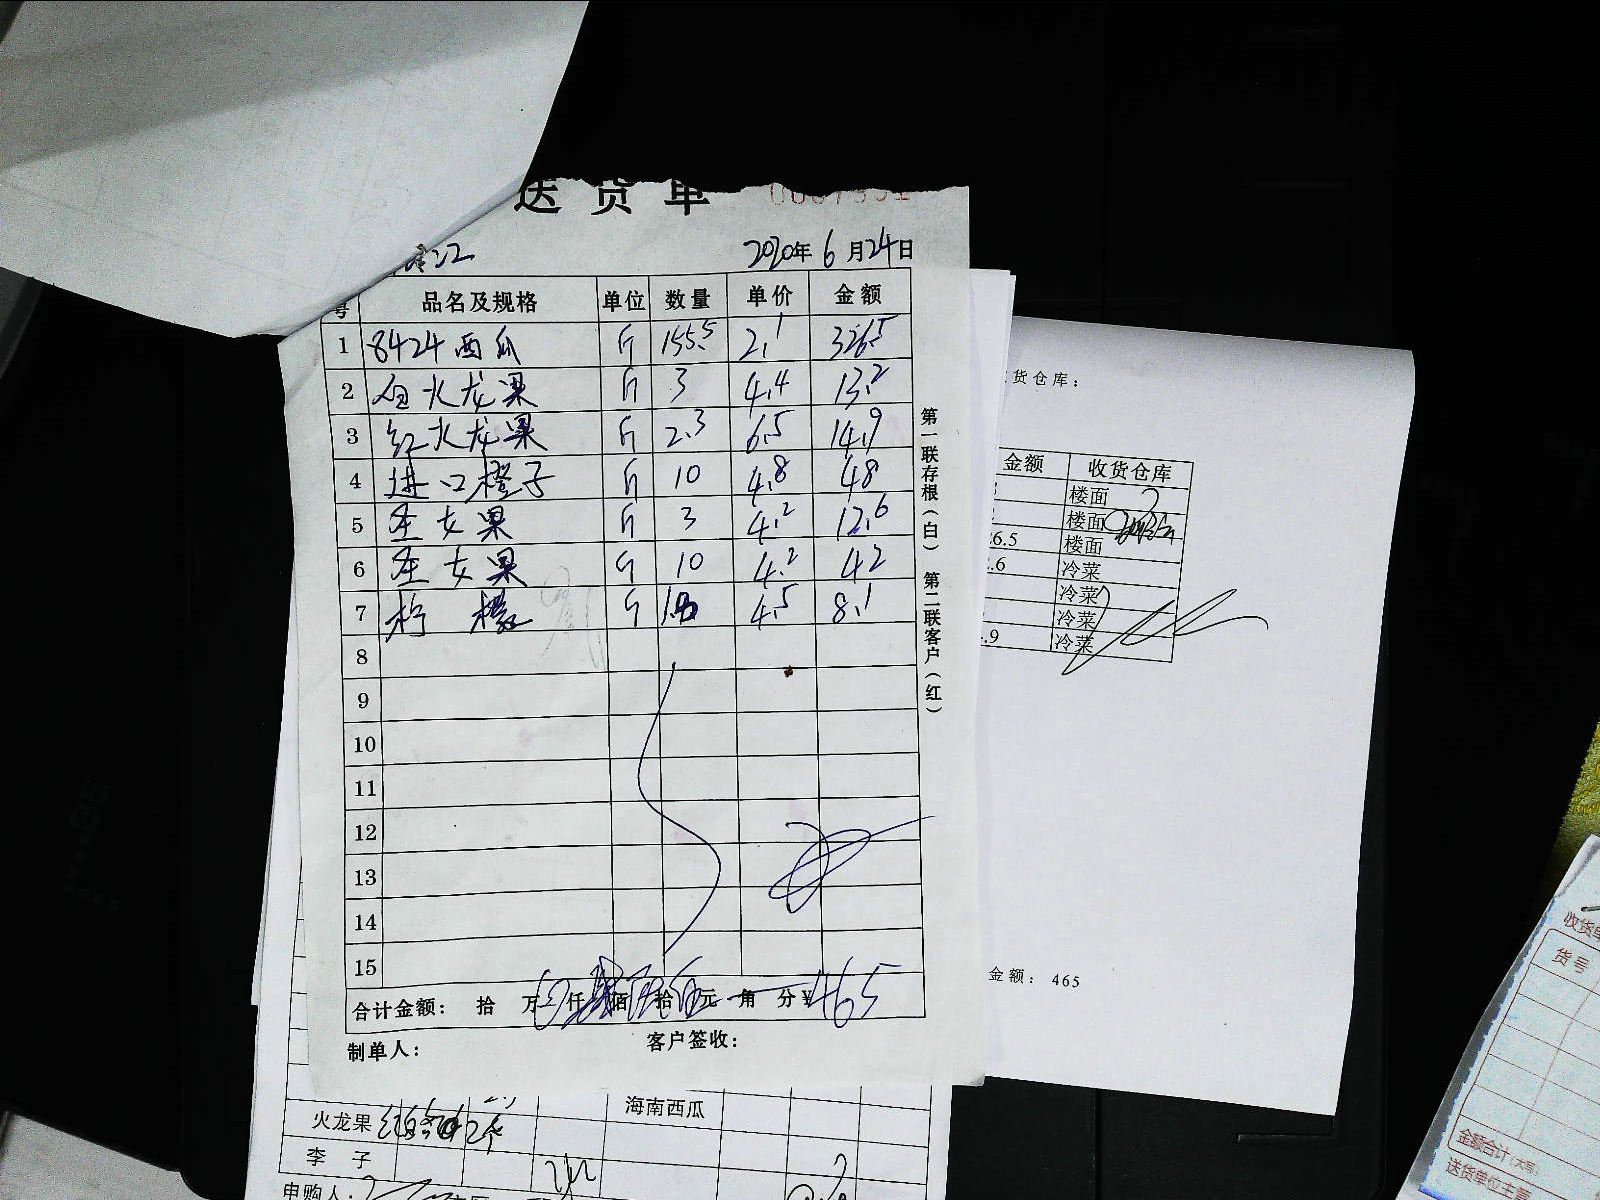 送货单
2020年6月24日
号 品名及规格 单位 数量 单价 金额
1 8424西瓜 斤 155.5 2.1 326.5
2 白火龙果 斤 3 4.4 13.2
3 红火龙果 斤 2.3 6.5 14.9
4 进口橙子 斤 10 4.8 48
5 圣女果 斤 3 4.2 12.6
6 圣女果 斤 10 4.2 42
7 柠檬 斤 1.8 4.5 8.1
8
9
10
11
12
13
14
15
合计金额: 拾 万 仟 佰 拾 元 角 分 ¥465
制单人:
客户签收:
第一联存根(白) 第二联客户(红)
货仓库:
金额 收货仓库
楼面
楼面
26.5 楼面
.6 冷菜
冷菜
冷菜
.9 冷菜
金额: 465
海南西瓜
火龙果
李子
申购人:
收货单
货号
金额合计(大写)
送货单位主管